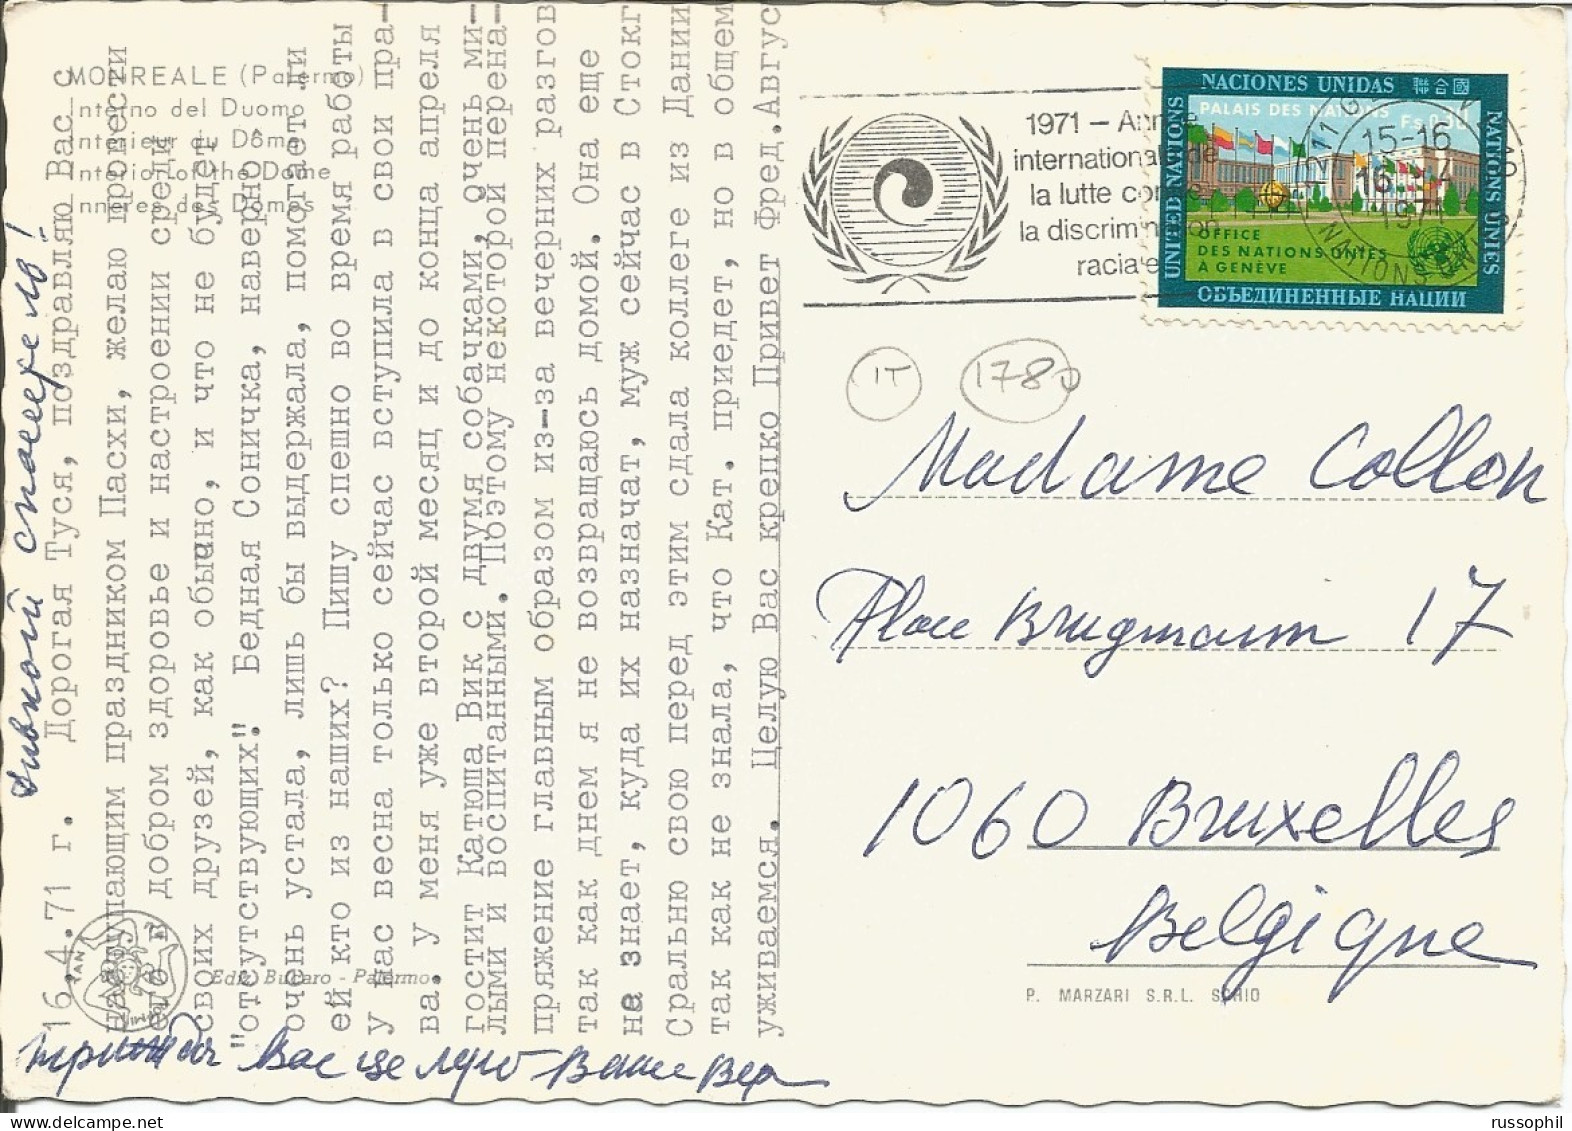 MONREALE (Palermo)
Interno del Duomo
Intérieur du Dôme
Interior of the Dome
Inneres des Domes
16.4.71 г. Дорогая Туся, поздравляю Вас с
наступающим праздником Пасхи, желаю провести
его в добром здоровье и настроении среди
своих друзей, как обычно, и что не будет
"отсутствующих". Бедная Соничка, наверно,
очень устала, лишь бы выдержала, помогает ли
ей кто из наших? Пишу спешно во время работы
У нас весна только сейчас вступила в свои пра-
ва. У меня уже второй месяц и до конца апреля
гостит Катюша Вик с двумя собачками, очень ми-
лыми и воспитанными. Поэтому некоторой перена-
пряжение главным образом из-за вечерних разгов
так как днем я не возвращаюсь домой. Она еще
не знает, куда их назначат, муж сейчас в Стокг
Сральню свою перед этим сдала коллеге из Дании
так как не знала, что Кат. приедет, но в общем
уживаемся. Целую Вас крепко Привет Фред. Авгус
трижды Вас целую Ваша Вера
Ediz. Buccaro - Palermo
1971 – Année
internationale de
la lutte contre
la discrimination
raciale
NACIONES UNIDAS 聯合國
PALAIS DES NATIONS F.s. 0,30
UNITED NATIONS
NATIONS UNIES
OFFICE
DES NATIONS UNIES
À GENÈVE
ОБЪЕДИНЕННЫЕ НАЦИИ
1211 G
15-16
16
1971
NATIONS UNIES
IT
1780
Madame Collon
Place Brugmann 17
1060 Bruxelles
Belgique
P. MARZARI S.R.L. SCHIO
russophil